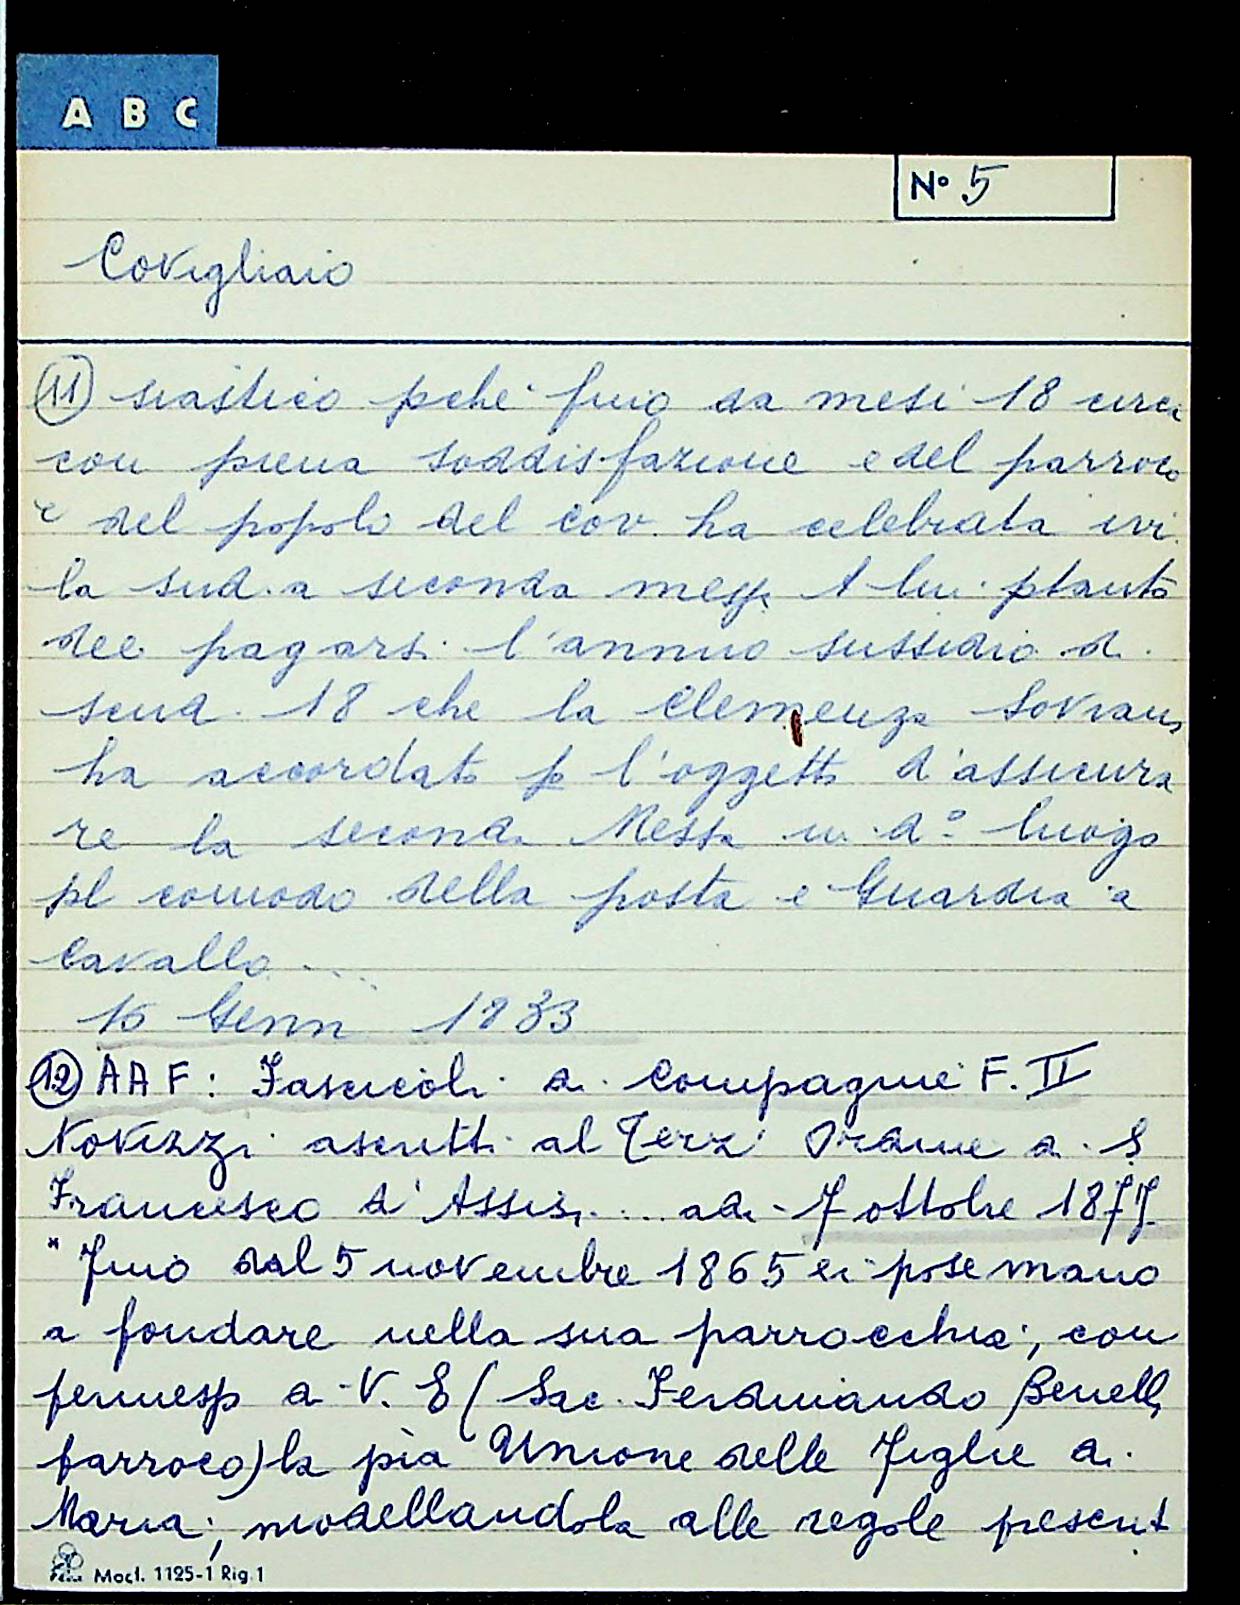 A B C
Nº 5
Covigliaio
11 siastico pchè fino da mesi 18 circa
con piena soddisfazione e del parroco
e del popolo del Cov. ha celebrata ivi
la sud.a seconda messa A lui ptanto
dee pagarsi l'annuo sussidio di
scudi 18 che la Clemenza Sovrana
ha accordato p l'oggetto d'assicura
re la seconda Messa in dº luogo
pl comodo della posta e Guardia a
Cavallo ...
Genn 1833
12 AAF: Fascicoli di Compagnie F. II
Novizzi ascritti al Terz' Ordine di S
Francesco d'Assisi ... adi - 7 ottobre 1877
" Fino dal 5 novembre 1865 ei pose mano
a fondare nella sua parrocchia, con
permesso di V. E (Sac. Ferdinando Benelli
parroco) la pia Unione delle Figlie di
Maria, modellandola alle regole present
Mod. 1125-1 Rig.1